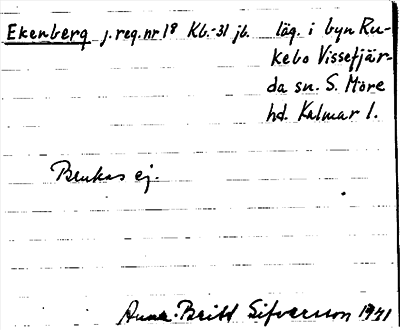 Ekenberg j. reg. nr 1⁸ Kb.-31 jb. läg. i byn Ru-
kebo Vissefjär-
da sn. S. Möre
hd. Kalmar l.
Brukas ej.
Anna-Britt Sifversson 1931